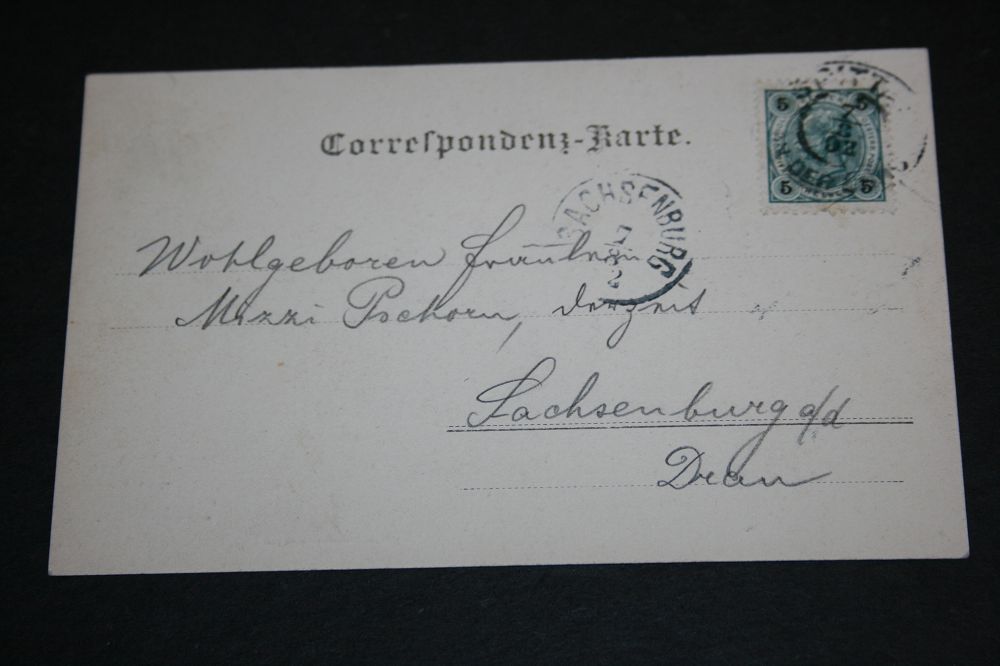 Correspondenz-Karte.
5 5
5 5
SACHSENBURG
Wohlgeboren Fräulein
Mizzi Pschorn, derzeit
Sachsenburg a/d
Drau